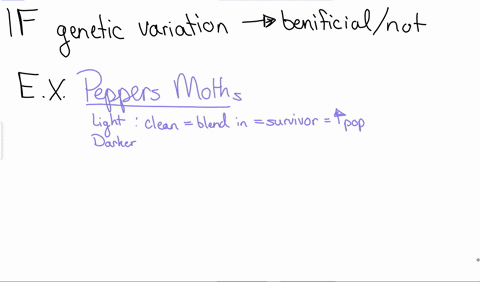 IF genetic variation → benificial/not
E.X. Peppers Moths
Light : clean = blend in = survivor = ↑pop
Darker